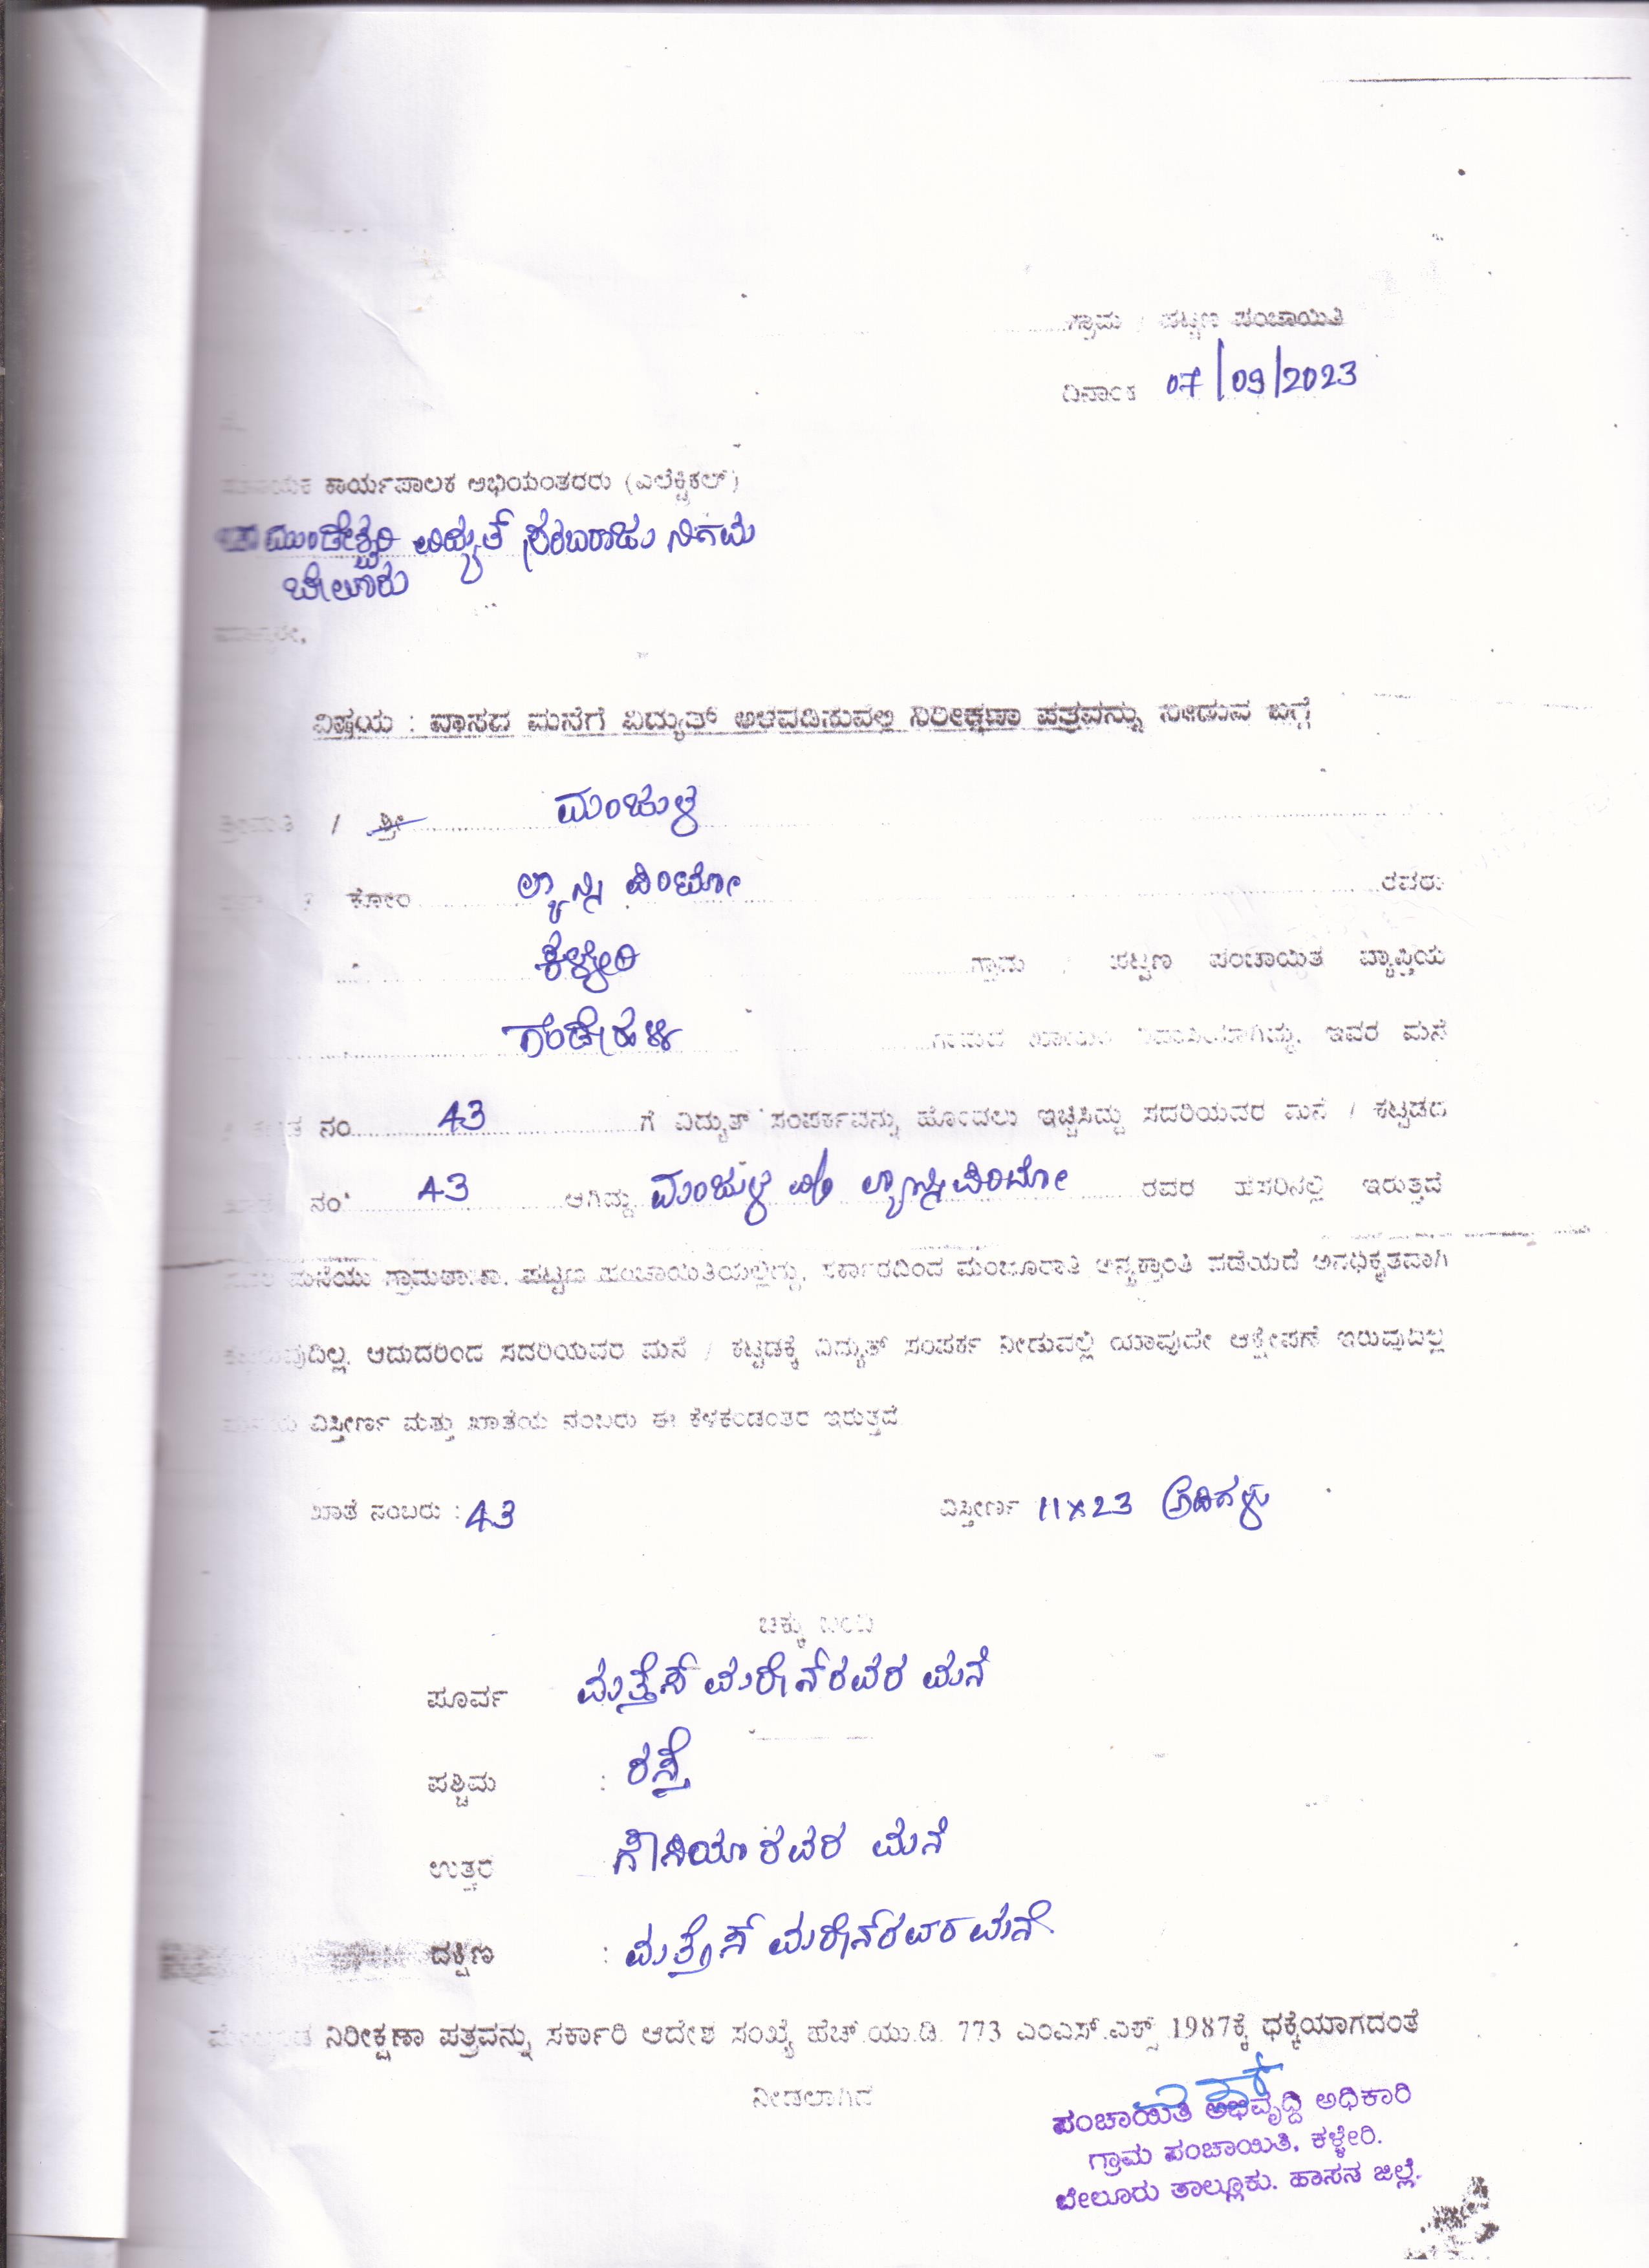 ಗ್ರಾಮ / ಪಟ್ಟಣ ಪಂಚಾಯಿತಿ
ದಿನಾಂಕ 07/09/2023
ಕಾರ್ಯಪಾಲಕ ಅಭಿಯಂತರರು (ಎಲೆಕ್ಟ್ರಿಕಲ್)
ಚಾಮುಂಡೇಶ್ವರಿ ವಿದ್ಯುತ್ ಸರಬರಾಜು ನಿಗಮ
ಬೇಲೂರು
ಮಾನ್ಯರೇ,
ವಿಷಯ : ವಾಸದ ಮನೆಗೆ ವಿದ್ಯುತ್ ಅಳವಡಿಸುವಲ್ಲಿ ನಿರೀಕ್ಷಣಾ ಪತ್ರವನ್ನು ನೀಡುವ ಬಗ್ಗೆ
ಶ್ರೀಮತಿ / ಶ್ರೀ ಮಂಜುಳ
ಕೋಂ ಲ್ಯಾನ್ಸಿ ಪಿಂಟೋ ರವರು
ಕಳ್ಳೇರಿ ಗ್ರಾಮ / ಪಟ್ಟಣ ಪಂಚಾಯಿತಿ ವ್ಯಾಪ್ತಿಯ
ಗೆಂಡೇಹಳ್ಳಿ ಗ್ರಾಮದ ಖಾಯಂ ನಿವಾಸಿಯಾಗಿದ್ದು, ಇವರ ಮನೆ
ನಂ 43 ಗೆ ವಿದ್ಯುತ್ ಸಂಪರ್ಕವನ್ನು ಹೊಂದಲು ಇಚ್ಚಿಸಿದ್ದು ಸದರಿಯವರ ಮನೆ / ಕಟ್ಟಡದ
ಖಾತೆ ನಂ 43 ಆಗಿದ್ದು ಮಂಜುಳ ಲ್ಯಾನ್ಸಿಪಿಂಟೋ ರವರ ಹೆಸರಿನಲ್ಲಿ ಇರುತ್ತದೆ
ಮನೆಯು ಗ್ರಾಮಠಾಣಾ, ಪಟ್ಟಣ ಪಂಚಾಯಿತಿಯಲ್ಲಿದ್ದು, ಸರ್ಕಾರದಿಂದ ಮಂಜೂರಾತಿ ಅನ್ಯಕ್ರಾಂತಿ ಪಡೆಯದೆ ಅನಧಿಕೃತವಾಗಿ
ಆದುದರಿಂದ ಸದರಿಯವರ ಮನೆ / ಕಟ್ಟಡಕ್ಕೆ ವಿದ್ಯುತ್ ಸಂಪರ್ಕ ನೀಡುವಲ್ಲಿ ಯಾವುದೇ ಆಕ್ಷೇಪಣೆ ಇರುವುದಿಲ್ಲ
ವಿಸ್ತೀರ್ಣ ಮತ್ತು ಖಾತೆಯ ನಂಬರು ಈ ಕೆಳಕಂಡಂತರ ಇರುತ್ತದೆ
ಖಾತೆ ನಂಬರು : 43 ವಿಸ್ತೀರ್ಣ 11x23 ಅಡಿಗಳು
ಚಕ್ಕು ಬಂದಿ
ಪೂರ್ವ ಮತ್ತೆಸ್ ಮರೀನ್ ರವರ ಮನೆ
ಪಶ್ಚಿಮ : ರಸ್ತೆ
ಉತ್ತರ ರವರ ಮನೆ
ದಕ್ಷಿಣ : ಮತ್ತೆಸ್ ಮರೀನ್ ರವರ ಮನೆ
ನಿರೀಕ್ಷಣಾ ಪತ್ರವನ್ನು ಸರ್ಕಾರಿ ಆದೇಶ ಸಂಖ್ಯೆ ಹೆಚ್.ಯು.ಡಿ. 773 ಎಂಎಸ್.ಎಕ್ಸ್ 1987ಕ್ಕೆ ಧಕ್ಕೆಯಾಗದಂತೆ
ನೀಡಲಾಗಿದೆ
ಪಂಚಾಯಿತಿ ಅಭಿವೃದ್ಧಿ ಅಧಿಕಾರಿ
ಗ್ರಾಮ ಪಂಚಾಯಿತಿ, ಕಳ್ಳೇರಿ.
ಬೇಲೂರು ತಾಲ್ಲೂಕು. ಹಾಸನ ಜಿಲ್ಲೆ.